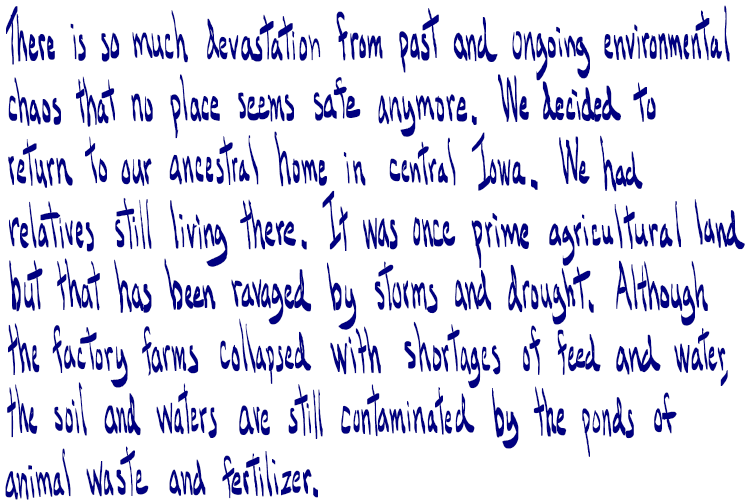 There is so much devastation from past and ongoing environmental
chaos that no place seems safe anymore. We decided to
return to our ancestral home in central Iowa. We had
relatives still living there. It was once prime agricultural land
but that has been ravaged by storms and drought. Although
the factory farms collapsed with shortages of feed and water,
the soil and waters are still contaminated by the ponds of
animal waste and fertilizer.